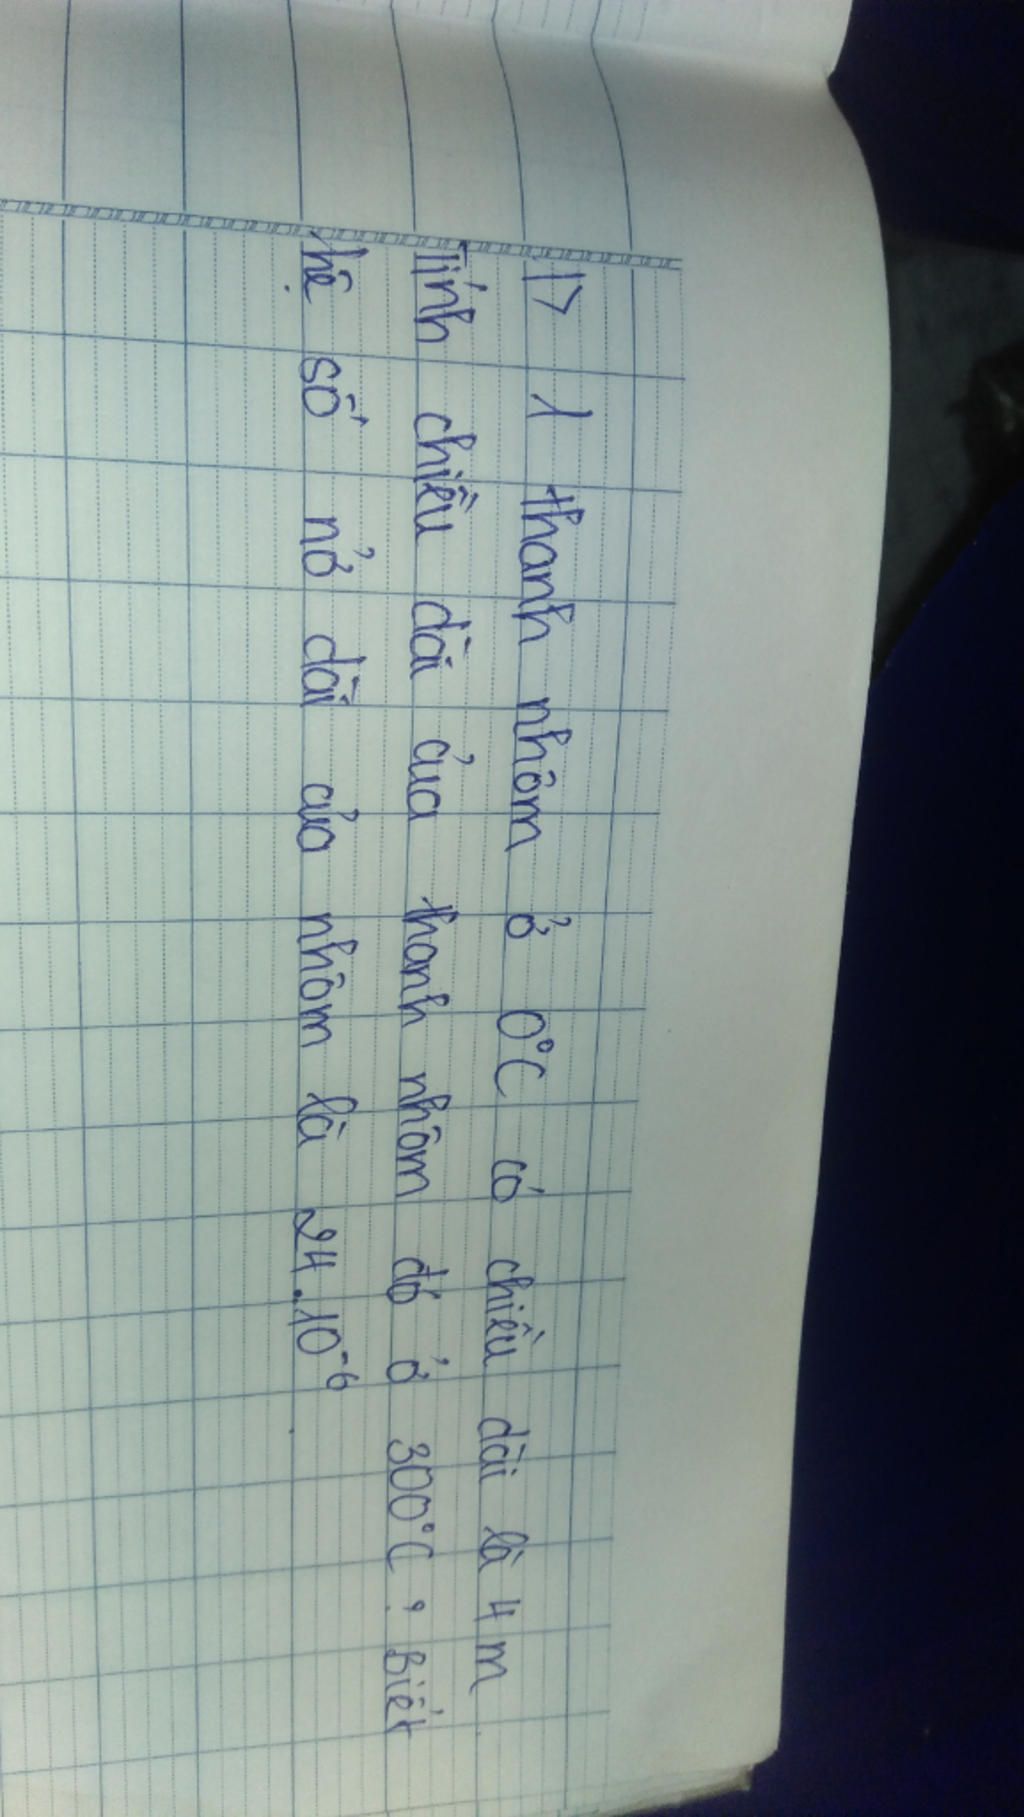 1> 1 thanh nhôm ở 0°C có chiều dài là 4m.
Tính chiều dài của thanh nhôm đó ở 300°C ? Biết
hệ số nở dài của nhôm là 24.10⁻⁶.